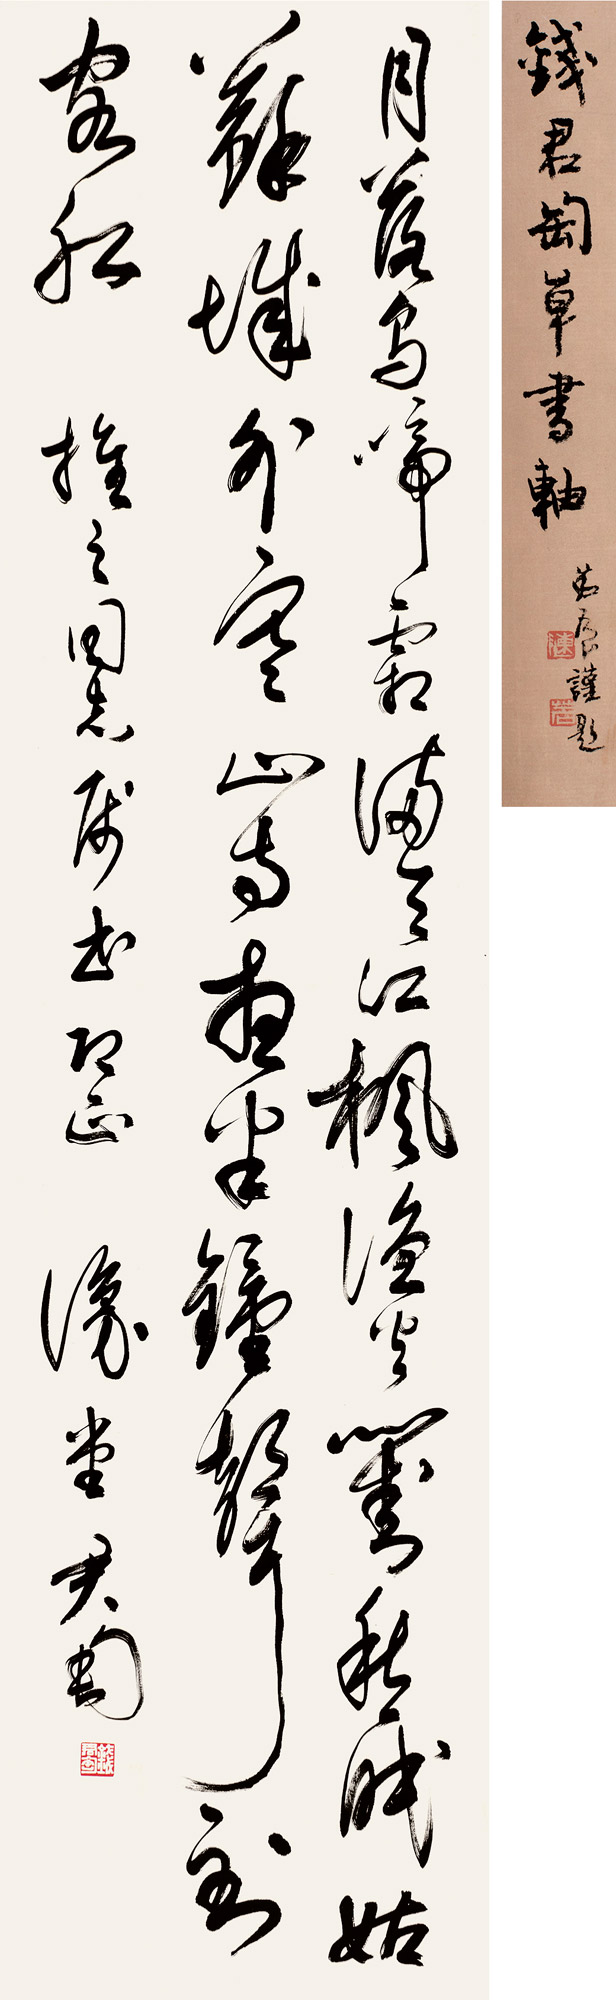 錢君匋草書軸
茗屋謹題
陳
月落烏啼霜滿天江楓漁火對愁眠姑
蘇城外寒山寺夜半鐘聲到
客船 推之同志屬書即正 豫堂君匋